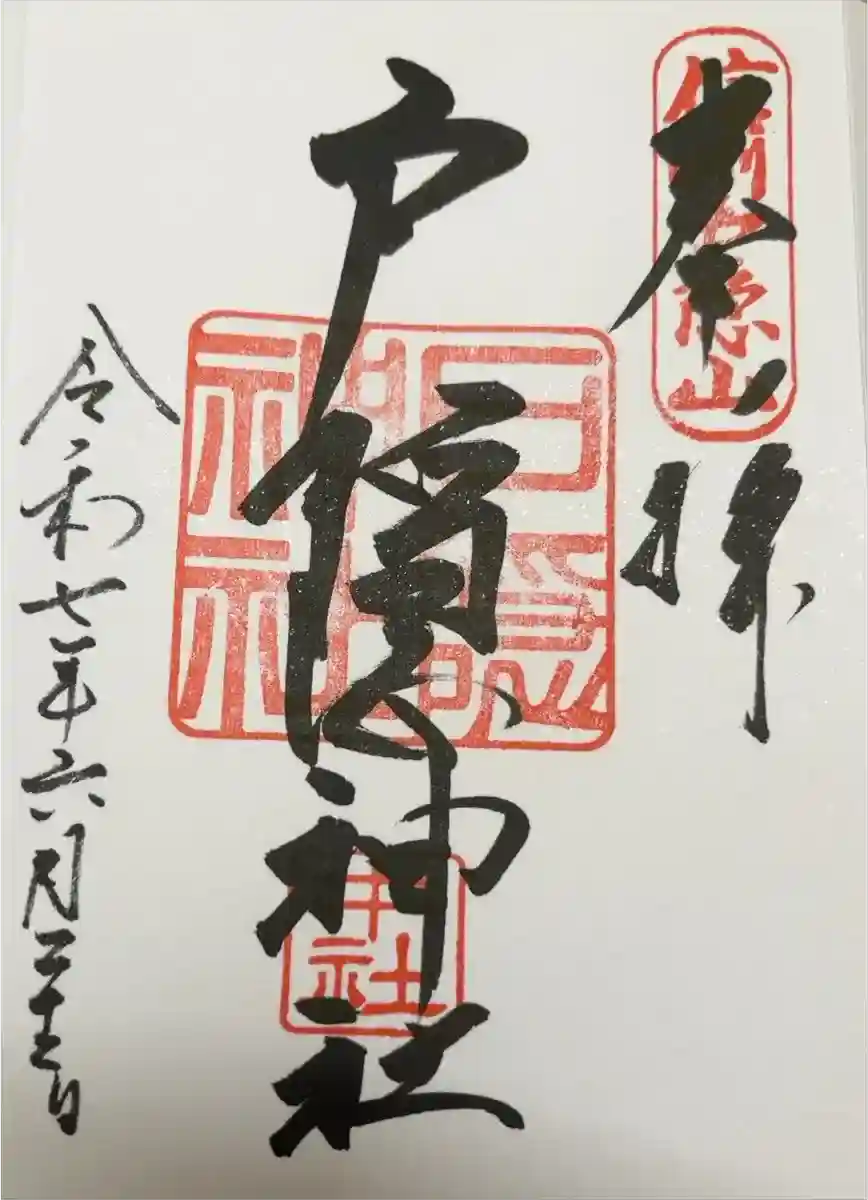 奉拝
信州戸隠山
戸隠神社
戸隠
神社
中社
令和七年六月二十二日